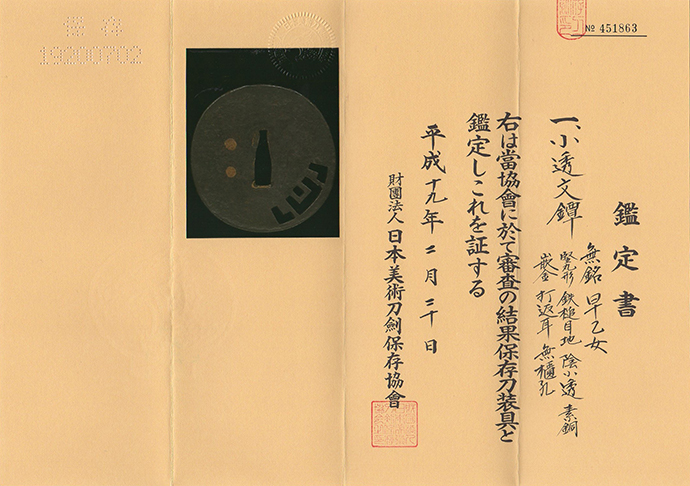 № 451863
鑑定書
一、小透文鐔
無銘 早乙女
竪丸形 鉄槌目地 陰小透 素銅
嵌金 打返耳 無櫃孔
右は當協會に於て審査の結果保存刀装具と
鑑定しこれを証する
平成十九年二月二十日
財團法人 日本美術刀劍保存協會
保存
19200702